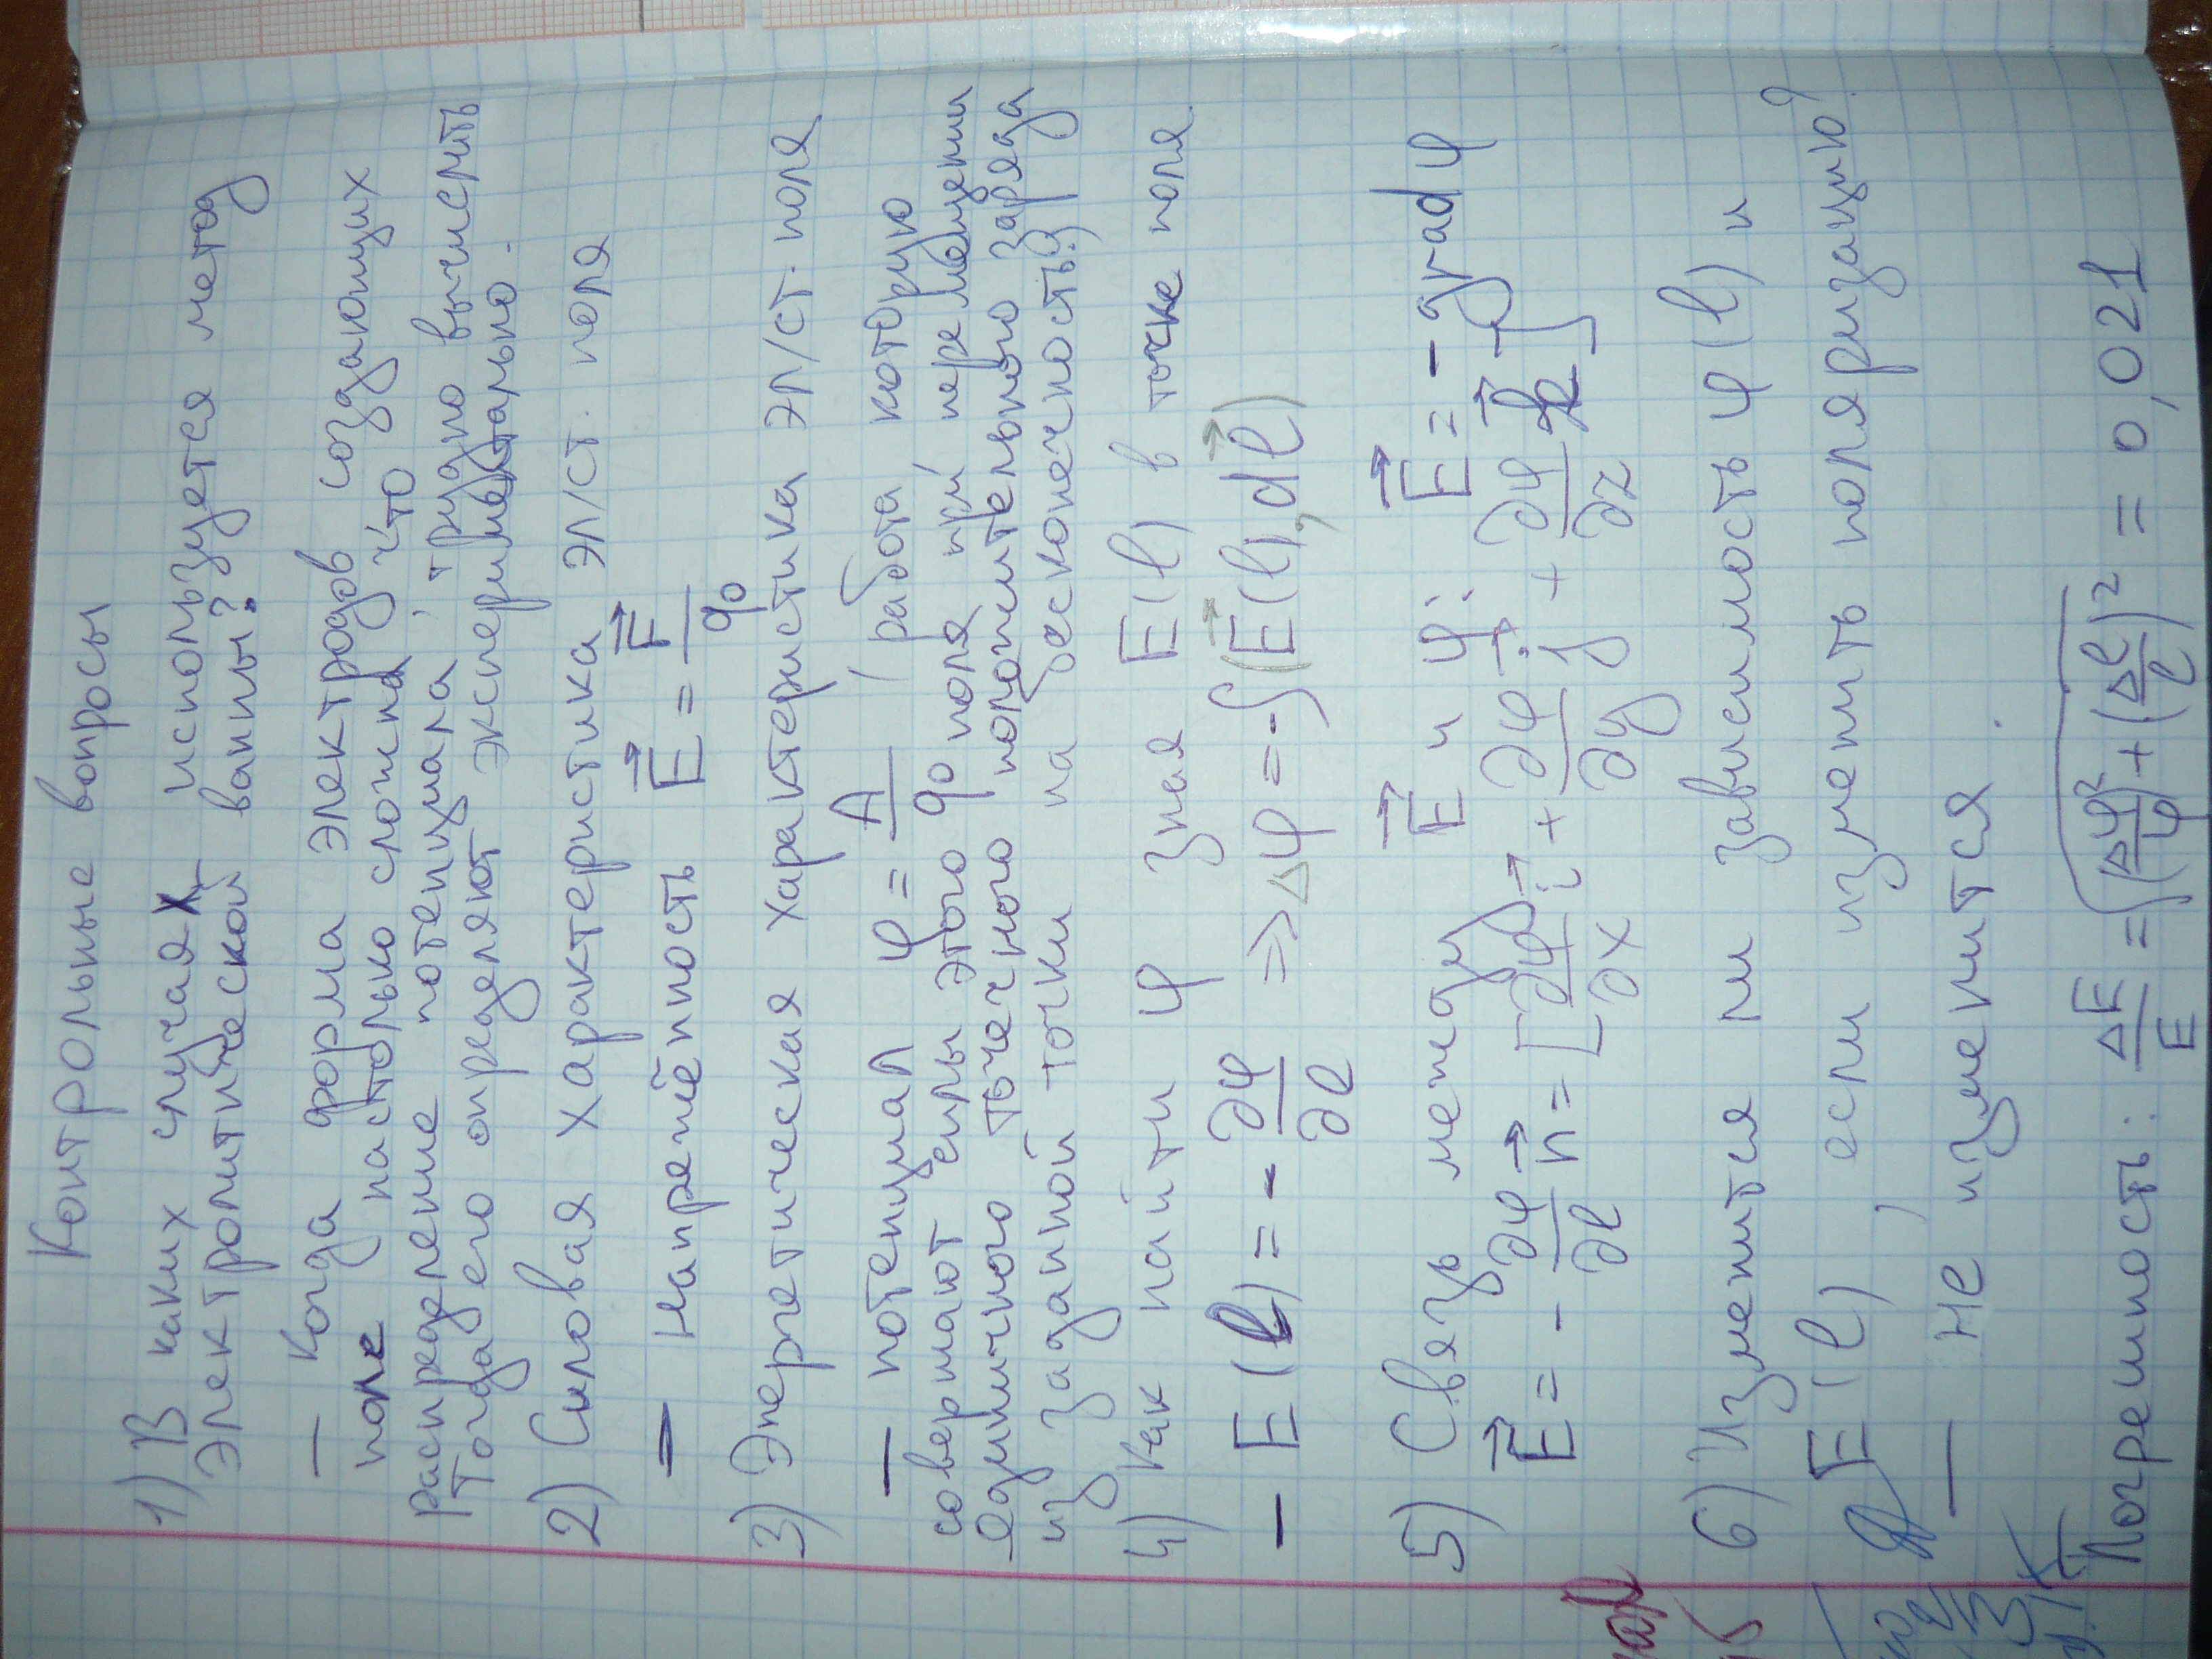 Контрольные вопросы
1) В каких случаях используется метод
электролитической ванны?
— Когда форма электродов, создающих
поле настолько сложна, что
распределение потенциала трудно вычислить
Тогда его определяют экспериментально.
2) Силовая характеристика эл/ст. поля
— Напрежённость E⃗ = F⃗/q₀
3) Энергетическая характеристика эл/ст. поля
— потенциал φ = A/q₀ (работа, которую
совершают силы этого поля при перемещении
единичного точечного положительного заряда
из заданной точки на бесконечность.)
4) Как найти φ зная E(l) в точке поля.
— E(l) = - ∂φ/∂l ⇒ Δφ = -∫(E⃗(l), dl⃗)
5) Связь между E⃗ и φ: E⃗ = -grad φ
E⃗ = - ∂φ/∂l n⃗ = [∂φ/∂x i⃗ + ∂φ/∂y j⃗ + ∂φ/∂z k⃗]
6) Изменится ли зависимость φ(l) и
E(l), если изменить поляризацию?
— не изменится.
Погрешность: ΔE/E = √((Δφ/φ)² + (Δl/l)²) = 0,021